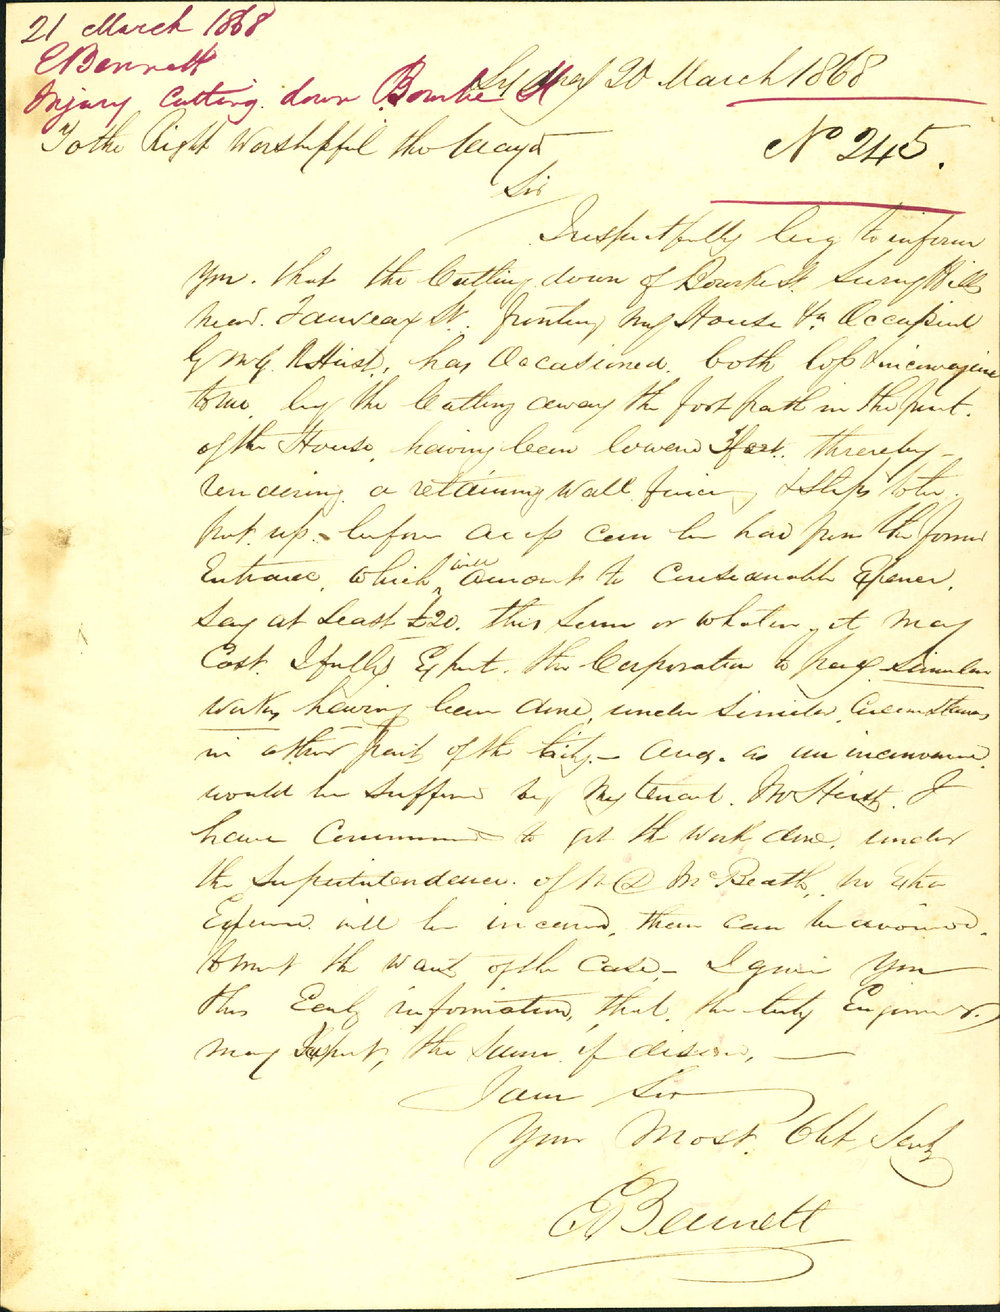 21 March 1868
E Bennett
Injury Cutting down Bourke St
Sydney 20 March 1868
To the Right Worshipful the Mayor
No 245.
Sir
I respectfully beg to inform
you. that the Cutting down of Bourke St. Surry Hills
near. Foveaux St. fronting my House Occupied
by Mr Hirst, has Occasioned. both loss & inconvenience
to me, by the Cutting away the foot path in the front.
of the House, having been lowered feet. thereby
rendering a retaining Wall fencing & steps to be.
put up. before access can be had from the former
Entrance, which will amount to Considerable Expence,
Say at Least £20. this Sum or whatever it may
Cost I fully Expect. the Corporation to pay Similar
works having been done, under Similar Circumstances
in other part of the City – And. as an inconvenience
would be suffered by My tenant. Mr Hirst. I
have Commenced to get the work done, under
the Superintendence. of Mr D McBeath, no Extra
Expence will be incurred, than can be avoided.
to meet the want of the Case – I give you
this Early information, that. the City Engineer.
may Inspect, the Same if desired, —
I am Sir
Your Most. Obt Servt
E Bennett